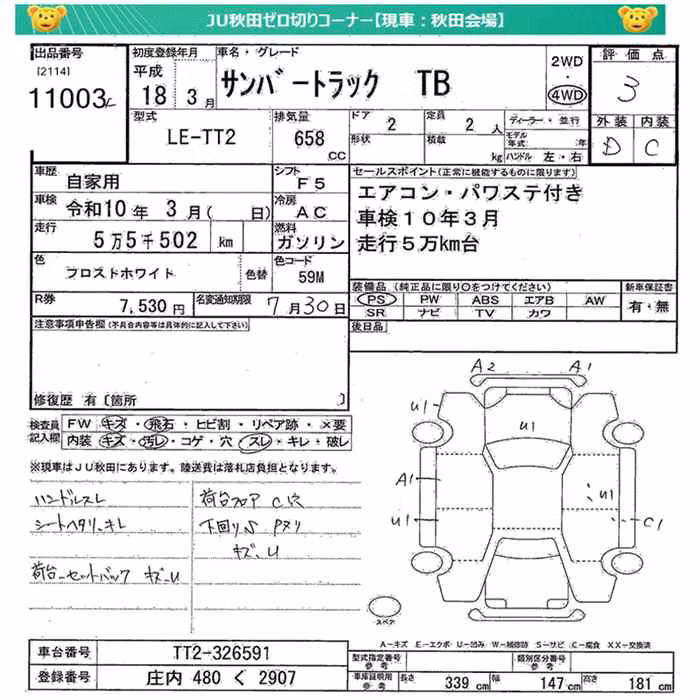 JU秋田ゼロ切りコーナー【現車：秋田会場】
出品番号 初度登録年月 車名・グレード 2WD・4WD 評価点
[2114]
11003 平成18 3月 サンバートラック TB 3
型式 LE-TT2 排気量 658 CC ドア 2 定員 2 人 ディーラー・並行 外装 内装
形状 積載 kg モデル年式 年 ハンドル 左・右 D C
車歴 自家用 シフト F5 セールスポイント(正常に機能するものに限ります)
車検 令和10年 3月( 日) 冷房 AC エアコン・パワステ付き
走行 5万5千502 km 燃料 ガソリン 車検10年3月
走行5万km台
色 フロストホワイト 色替 色コード 59M
装備品 (純正品に限り○をつけてください) 新車保証書
PS PW ABS エアB AW 有・無
SR ナビ TV カワ
R券 7,530円 名変通知期限 7月30日
後日品
注意事項申告欄(不具合内容等は具体的に記入して下さい)
修復歴 有〔箇所 〕
検査員記入欄 FW キズ・飛石・ヒビ割・リペア跡・×要
内装 キズ・汚レ・コゲ・穴・スレ・キレ・破レ
※現車はJU秋田にあります。陸送費は落札店負担となります。
ハンドルスレ 荷台フロア C穴
シートヘタリ、キレ 下回りS Pヌリ
キズ・U
荷台セットバック キズ・U
A2 A1
U1 U1
A1 U1
U1 C1
スペア
A−キズ E−エクボ U−凹み W−補修跡 S−サビ C−腐食 XX−交換済
車台番号 TT2-326591
型式指定番号 参考 類別区分番号 参考
登録番号 庄内 480 く 2907
車庫証明用 参考 長さ 339 cm 幅 147 cm 高さ 181 cm